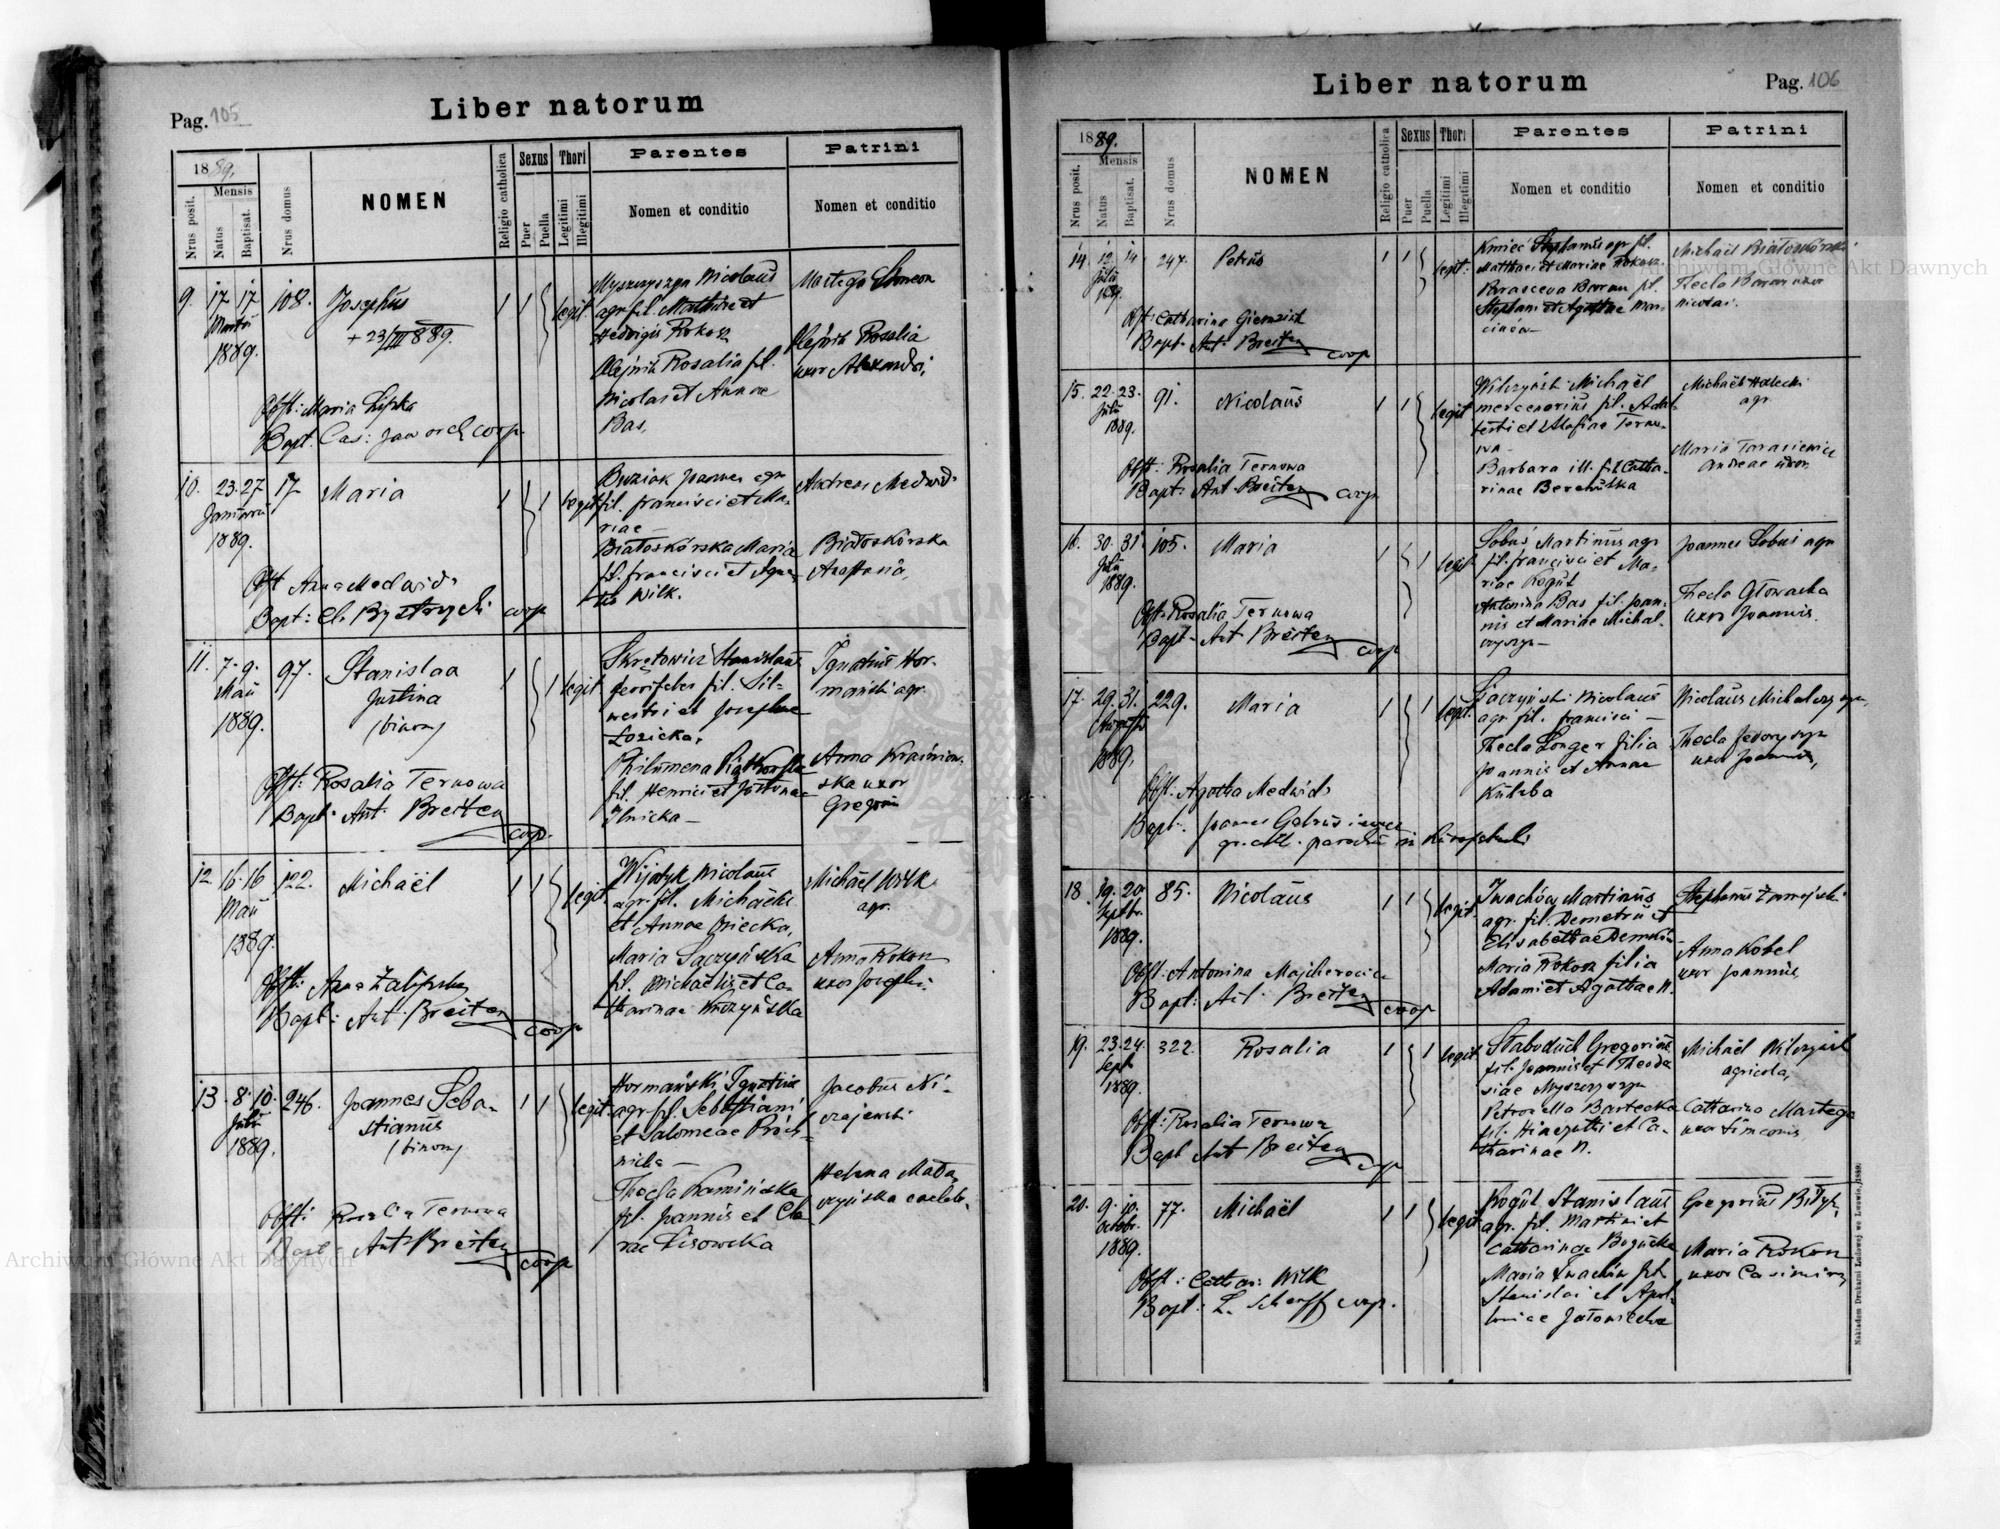 Pag. 105
Liber natorum
1889.
Mensis
Nrus posit.
Natus
Baptisat.
Nrus domus
NOMEN
Religio catholica
Sexus
Puer
Puella
Thori
Legitimi
Illegitimi
Parentes
Nomen et conditio
Patrini
Nomen et conditio
9. 17 17 108. Josephus 1 1 legit.
Martii
1889.
+ 23/III 889.
Obst: Maria Lipka
Bapt. Cas: coop.
Myszczyszyn Nicolaus
agr. fil. Mathiae et
Hedvigis Rokosz
Olejnik Rosalia fil.
Nicolai et Annae
Bas.
Martega Simeon
Olejnik Rosalia
uxor Alexandri,
10. 23. 27 17 Maria 1 1 legit.
Januarii
1889.
Obst Anna Medwid
Bapt: coop
Buziak Joannes agr
fil. Francisci et Ma-
riae
Białoskórska Maria
fil. Francisci et Agne-
tis Wilk.
Andreas Medwid
Białoskórska
11. 7. 9. 97. Stanislaa 1 1 legit.
Maii
1889.
Justina
(binom)
Obst: Rosalia Ternowa
Bapt. Ant. Breiter
coop.
Skrętowicz Stanislaus
fil. Sil-
westri et Josephae
Łozicka,
Philumena
fil. Henrici et Justinae
Ilnicka
Ignatius Hor-
mański agr.
Anna
ska uxor
Gregorii
12. 16. 16 122. Michaël 1 1 legit.
Maii
1889.
Obst: Anna
Bapt: Ant. Breiter
coop
Wijatyk Nicolaus
agr. fil. Michaëlis
et Annae
Maria Saczyńska
fil. Michaëlis et Ca-
tharinae
Michaël Wilk
agr.
Anna Rokosz
uxor Josephi
13. 8. 10. 246. Joannes Seba- 1 1 legit.
Julii
1889.
stianus
(binom)
Obst: Rosalia Ternowa
Bapt: Ant. Breiter
coop
Hormański Ignatius
agr. fil. Sebastiani
et Salomeae Proch-
nicka
Thecla Kamińska
fil. Joannis et Cla-
rae Lisowska
Jacobus Ni-
czajewski
Helena Mada-
czyńska
Liber natorum
Pag. 106
1889.
Mensis
Nrus posit.
Natus
Baptisat.
Nrus domus
NOMEN
Religio catholica
Sexus
Puer
Puella
Thori
Legitimi
Illegitimi
Parentes
Nomen et conditio
Patrini
Nomen et conditio
14. 12. 14 247. Petrus 1 1 legit.
Julii
1889.
Obst: Catharina
Bapt. Ant. Breiter
coop
Kmieć Stephanus agr. fil.
Matthaei et Mariae Rokosz.
Parasceva Baran fil.
Stephani et Agathae Mar-
Michaël Białoskórski
Thecla Baran uxor
Nicolai.
15. 22. 23. 91. Nicolaus 1 1 legit
Julii
1889.
Obst: Rosalia Ternowa
Bapt: Ant. Breiter coop
Wilczyński Michaël
mercenarius fil. Adal-
berti et Terno-
wa
Barbara ill. fil. Catha-
rinae
Michaël Halecki
agr.
Maria Tarasiewicz
Andreae uxor
16. 30. 31. 105. Maria 1 1 legit.
Julii
1889.
Obst. Rosalia Ternowa
Bapt. Ant. Breiter
coop
Sobuś Martinus agr
fil. Francisci et Ma-
riae Kogut
Antonina Bas fil. Joan-
nis et Mariae Michal-
czyszyn
Joannes Sobuś agr
Thecla Głowacka
uxor Joannis.
17. 29. 31. 229. Maria 1 1 legit.
Augusti
1889.
Obst: Agatha Medwid
Bapt.
gr. cath.
Saczyński Nicolaus
agr. fil. Francisci
Thecla Longer filia
Joannis et Annae
Kuleba
Thecla
uxor Joannis,
18. 19. 20 85. Nicolaus 1 1 legit.
Septbr.
1889.
Obst: Antonina
Bapt: Ant. Breiter
coop
Iwachów Martinus
agr. fil. Demetrii et
Elisabethae
Maria Rokosz filia
Adami et Agathae N.
Stephanus
Anna Kobel
uxor Joannis
19. 23. 24. 322. Rosalia 1 1 legit.
Septb
1889.
Obst: Rosalia Ternowa
Bapt Ant Breiter
coop
Słaboduch Gregorius
fil. Joannis et Theodo-
siae Myszczyszyn
Petronella Bartecka
fil. Hiacynthi et Ca-
tharinae N.
Michaël Wilczyński
agricola,
Catharina Martega
uxor Simeonis,
20. 9. 10. 77. Michaël 1 1 legit.
Octobr.
1889.
Obst: Cathar: Wilk
Bapt: L. Scharff coop.
Kogut Stanislaus
agr. fil. Martini et
Catharinae Bogucka
Maria Iwachów fil.
Stanislai et Apol-
loniae
Gregorius
Maria Rokosz
uxor Casimiri
Nakładem Drukarni Ludowej we Lwowie. 1889.
Archiwum Główne Akt Dawnych
Archiwum Główne Akt Dawnych